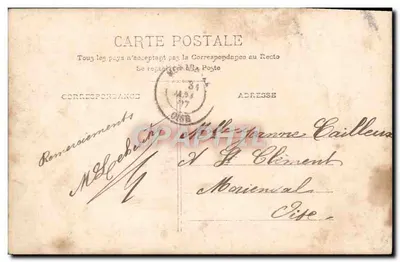 CARTE POSTALE
Tous les pays n'acceptent pas la Correspondance au Recto
Se renseigner à la Poste
CORRESPONDANCE
ADRESSE
31
07
OISE
Remerciements
Mlle Jeanne Cailleux
A St Clément
Morienval
Oise